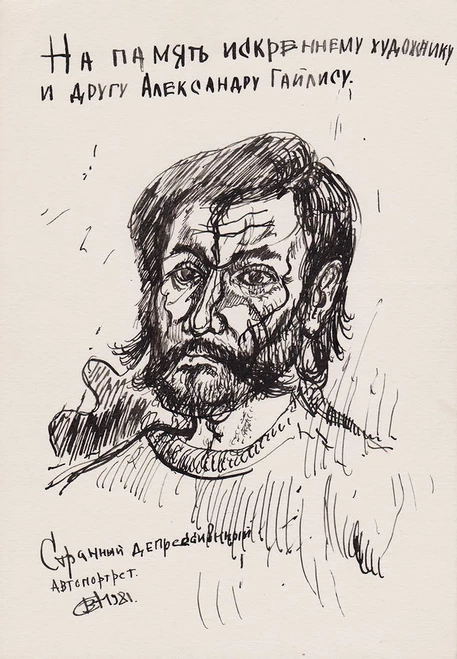 На память искреннему художнику
и другу Александру Гайлису.
Странный депрессивный
автопортрет.
1981.